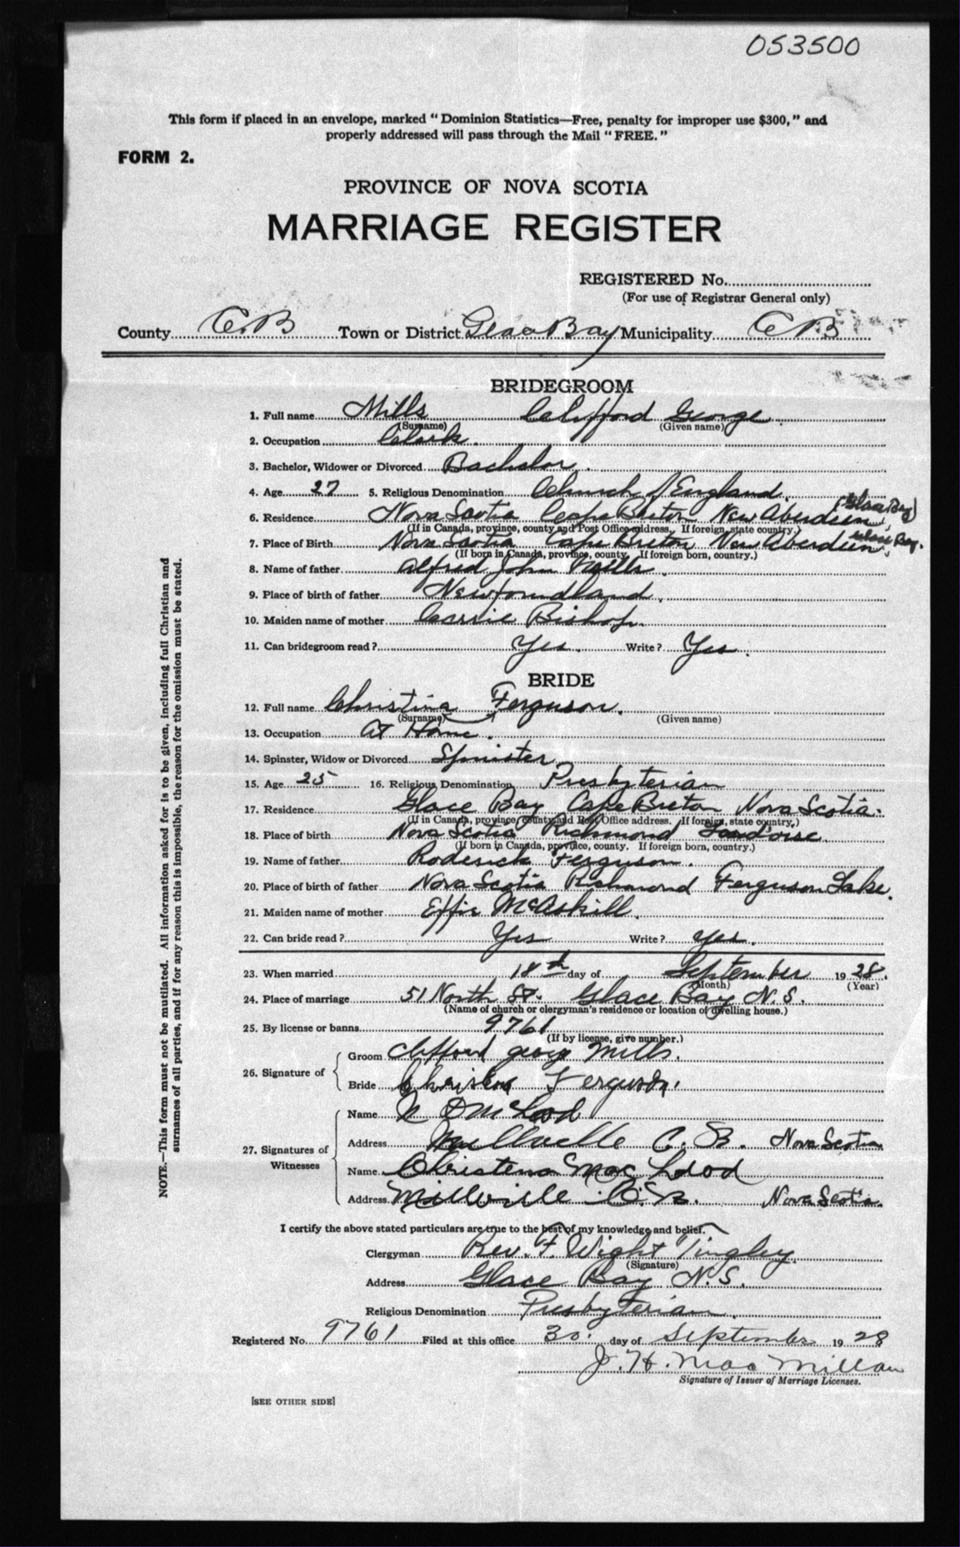 053500
This form if placed in an envelope, marked "Dominion Statistics—Free, penalty for improper use $300," and
properly addressed will pass through the Mail "FREE."
FORM 2.
PROVINCE OF NOVA SCOTIA
MARRIAGE REGISTER
REGISTERED No.
(For use of Registrar General only)
County C.B Town or District Glace Bay Municipality C B
BRIDEGROOM
1. Full name Mills Clifford George
(Surname) (Given name)
2. Occupation Clerk.
3. Bachelor, Widower or Divorced Bachelor.
4. Age 27 5. Religious Denomination Church of England.
6. Residence Nova Scotia Cape Breton New Aberdeen, (Glace Bay)
(If in Canada, province, county and Post Office address. If foreign, state country.)
7. Place of Birth Nova Scotia Cape Breton New Aberdeen, Glace Bay.
(If born in Canada, province, county. If foreign born, country.)
8. Name of father Alfred John Mills.
9. Place of birth of father Newfoundland.
10. Maiden name of mother Carrie Bishop.
11. Can bridegroom read? Yes. Write? Yes.
BRIDE
12. Full name Christina Ferguson.
(Surname) (Given name)
13. Occupation At Home.
14. Spinster, Widow or Divorced Spinster.
15. Age 25 16. Religious Denomination Presbyterian
17. Residence Glace Bay Cape Breton Nova Scotia.
(If in Canada, province, county and Post Office address. If foreign, state country.)
18. Place of birth Nova Scotia Richmond
(If born in Canada, province, county. If foreign born, country.)
19. Name of father Roderick Ferguson.
20. Place of birth of father Nova Scotia Richmond Ferguson Lake.
21. Maiden name of mother Effie McAskill.
22. Can bride read? Yes Write? yes.
23. When married 18th day of September 1928.
(Month) (Year)
24. Place of marriage 51 North St. Glace Bay N.S.
(Name of church or clergyman's residence or location of dwelling house.)
25. By license or banns 9761
(If by license, give number.)
26. Signature of
Groom Clifford George Mills.
Bride Christena Ferguson.
27. Signatures of Witnesses
Name N D McLeod
Address Millville C.B. Nova Scotia
Name Christena MacLeod
Address Millville C.B. Nova Scotia.
I certify the above stated particulars are true to the best of my knowledge and belief.
Clergyman Rev. F. Wight Tingley
(Signature)
Address Glace Bay N.S.
Religious Denomination Presbyterian
Registered No. 9761 Filed at this office 30. day of September 1928
J. H. MacMillan
Signature of Issuer of Marriage Licenses.
[SEE OTHER SIDE]
NOTE.—This form must not be mutilated. All information asked for is to be given, including full Christian and
surnames of all parties, and if for any reason this is impossible, the reason for the omission must be stated.